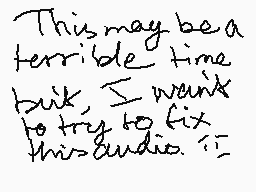 This may be a
terrible time
but, I want
to try to fix
this audio. =